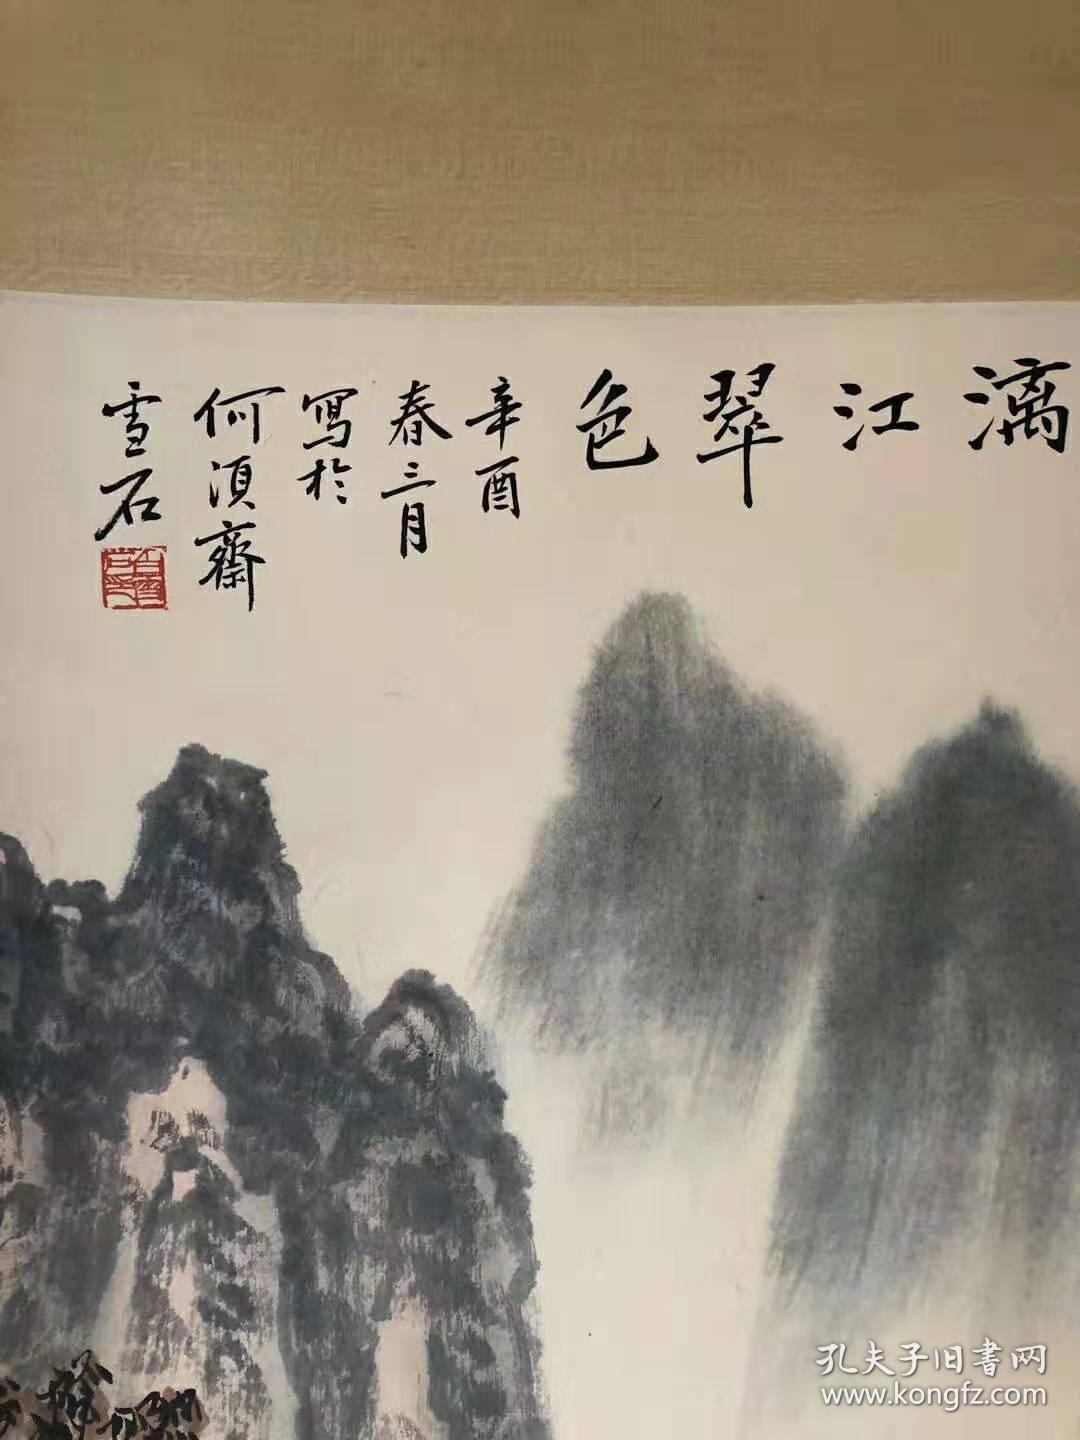 漓江翠色
辛酉
春三月
寫於
何須齋
雪石
白雪石印
孔夫子旧書网
www.kongfz.com